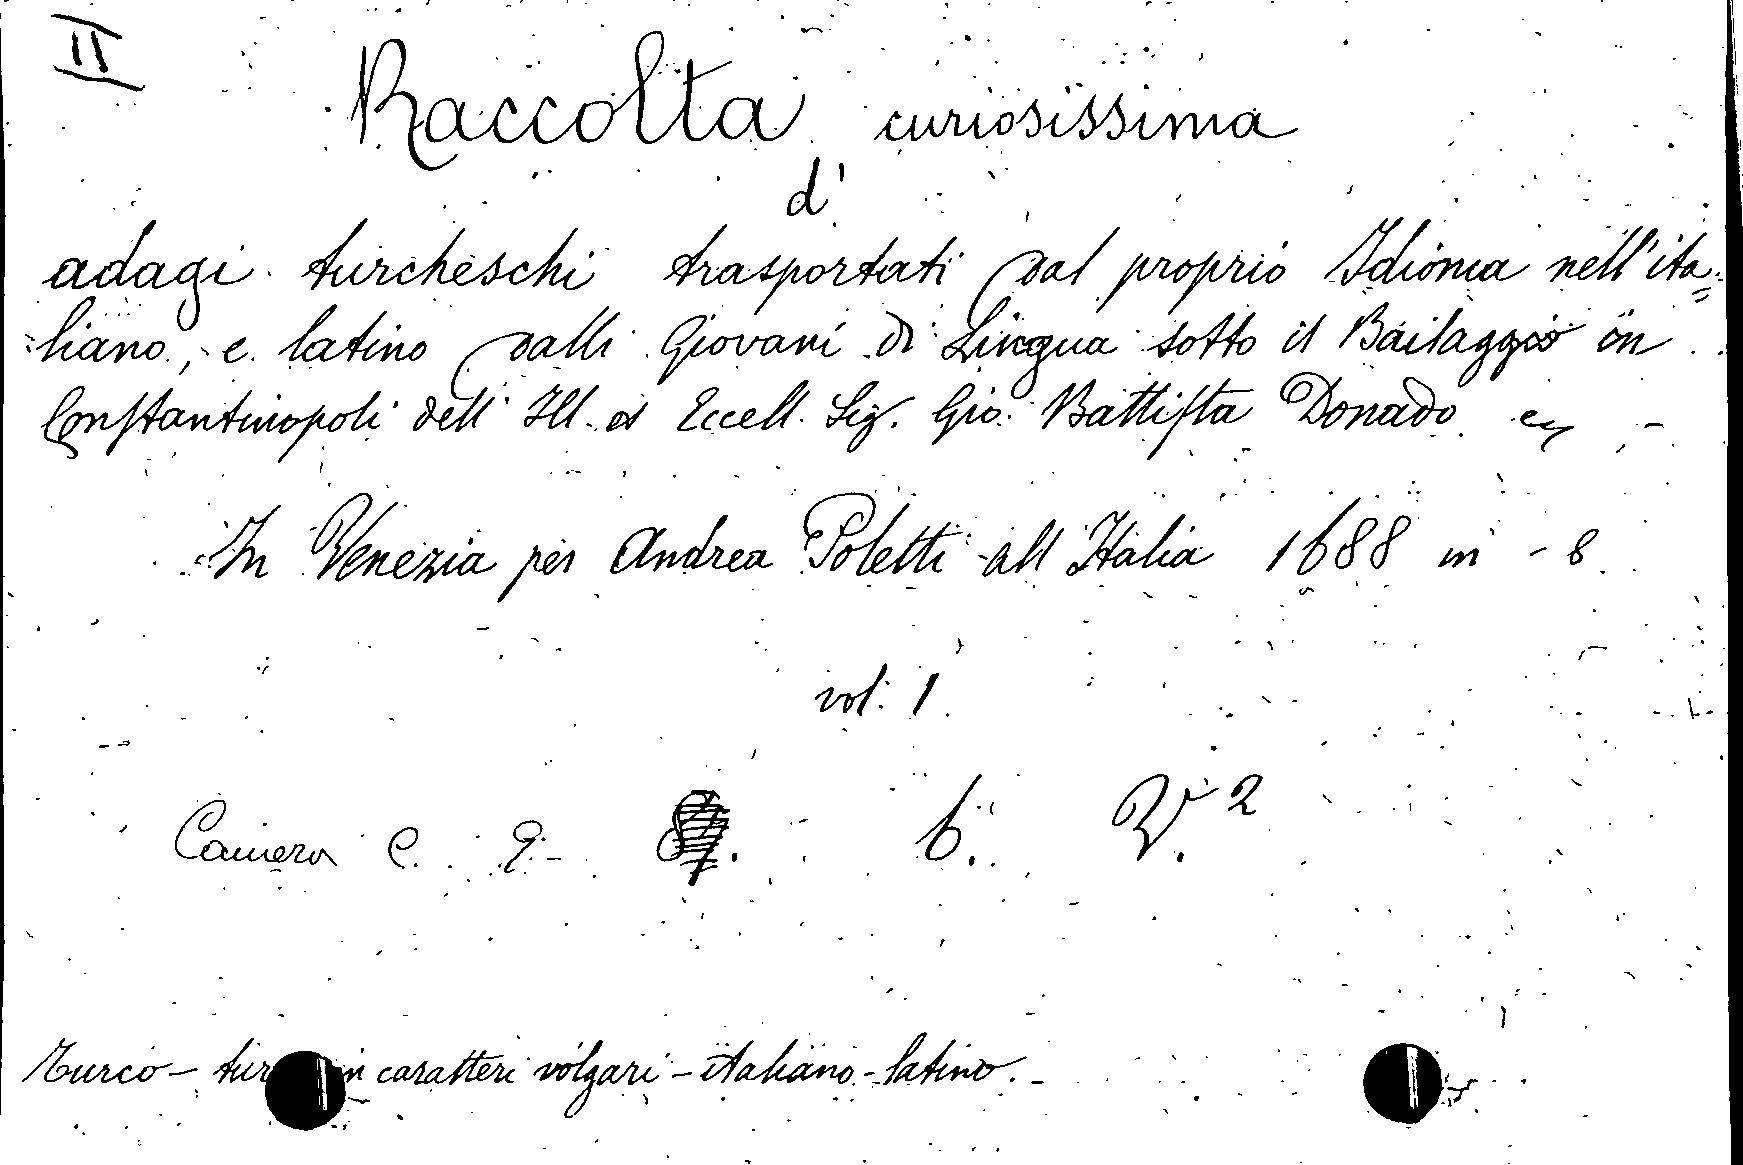 II
Raccolta curiosissima
d'
adagi turcheschi trasportati dal proprio Idioma nell'ita=
liano, e latino dalli Giovani di Lingua sotto il Bailaggio in
Constantinopoli dell' Ill. et Eccell. Sig. Gio. Battista Donado
In Venezia per Andrea Poletti all Italia 1688 in - 8
vol. 1
Camera C. 6. V. 2
Turco - in caratteri volgari - italiano - latino.